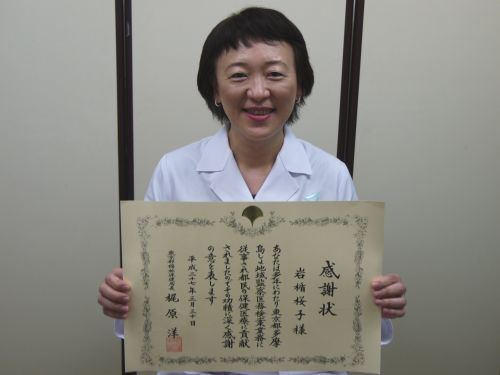 感謝状
岩楯桜子様
あなたは多年にわたり東京都多摩
島しょ地域監察医務検案業務に
従事され都民の保健医療に貢献
されましたのでその功績に深く感謝
の意を表します
平成二十七年三月三十日
東京都福祉保健局長 梶原洋